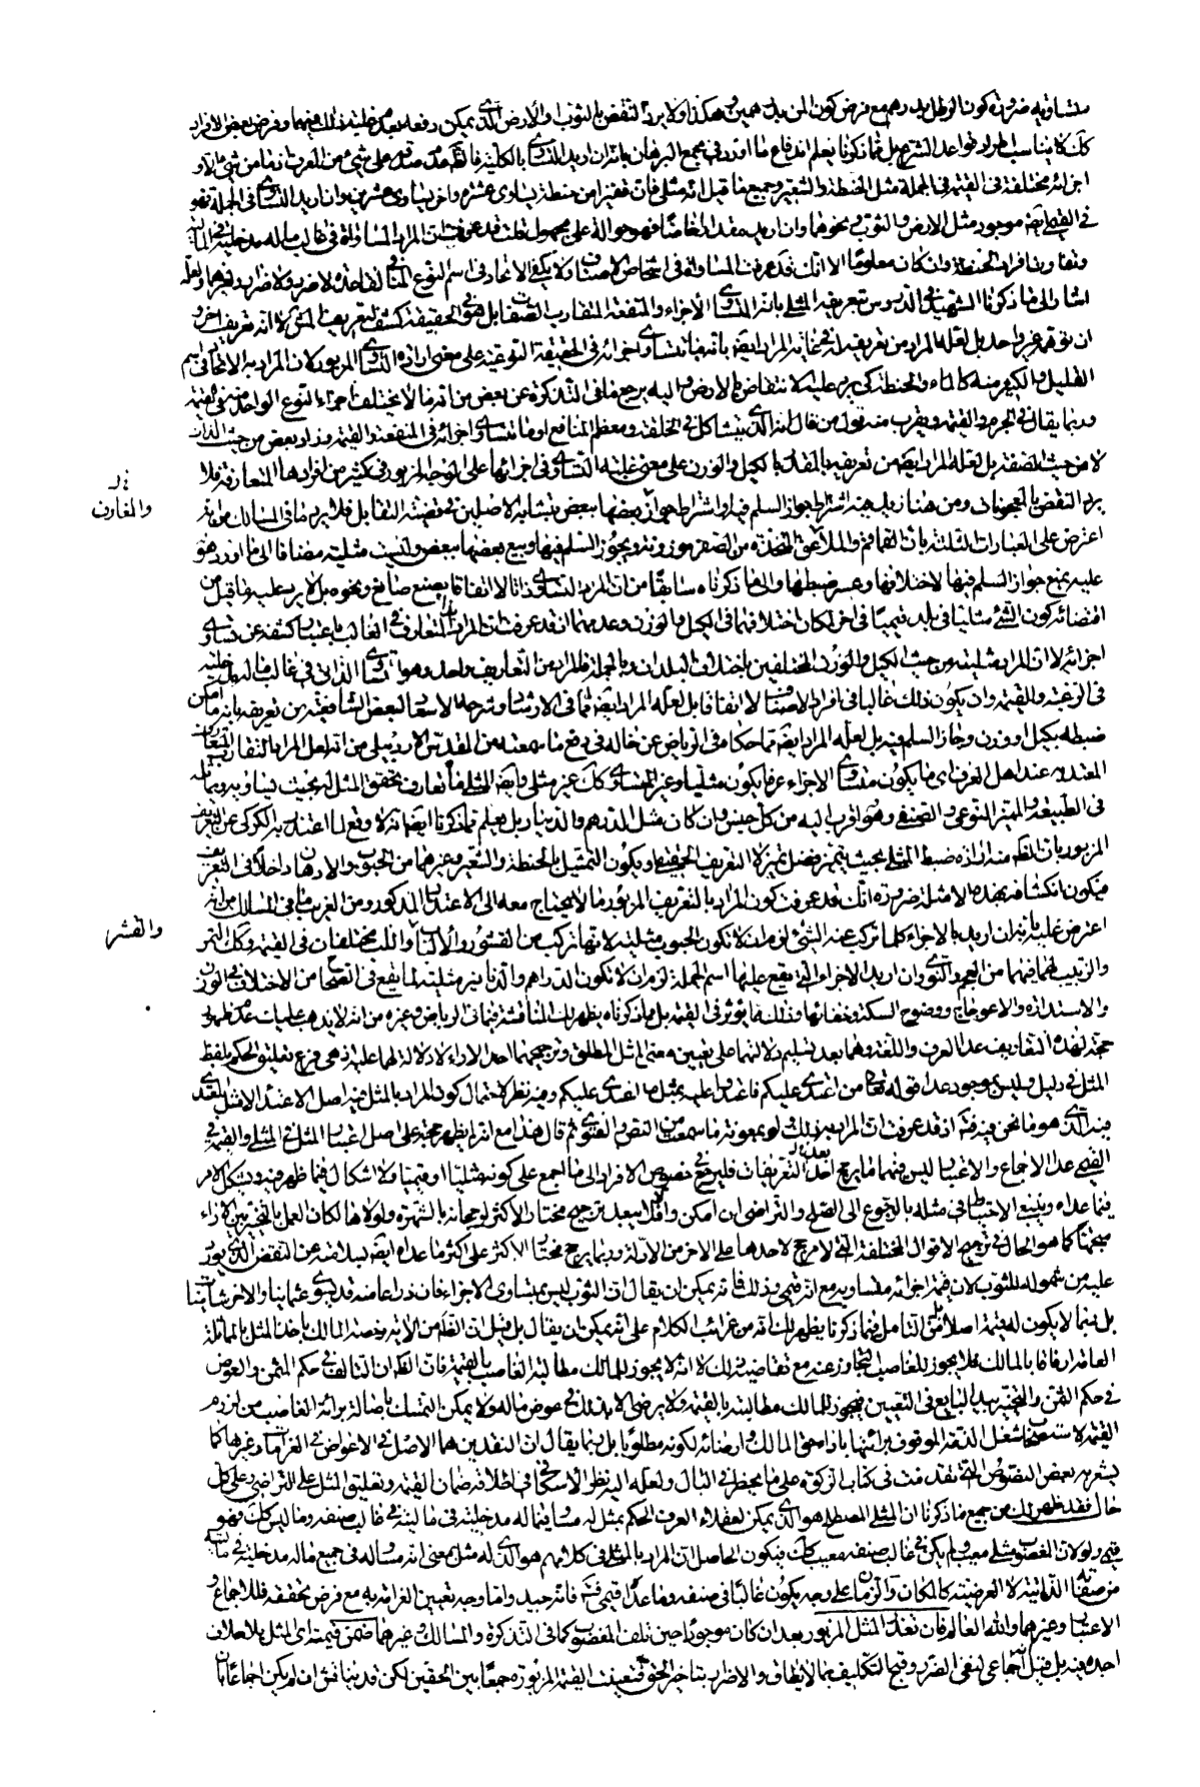 متساوية ضرورة كون الرطل بدرهم مع فرض كون المن بدرهمين وهكذا ولا يرد النقض بالثوب والأرض الذي يمكن دفعه
كل كما يناسب اطراد قواعد الشرع بل مما ذكرنا يعلم اندفاع ما أورد في مجمع البرهان بأنه إن أريد التساوي بالكلية فالظاهر عدم صدقه على شيء من المعرف إذ ما من شيء إلا و
أجزائه مختلفة في القيمة في الجملة مثل الحنطة والشعير وجميع ما قيل إنه مثلي فإن قفيزا من حنطة يساوي عشرة وآخر يساوي عشرين وإن أريد التساوي في الجملة فهو
في القيمي أيضا موجود مثل الأرض والثوب ونحوهما وإن أريد مقدارا خاصا فهو حوالة على مجهول قلت قد عرفت أن المراد المساواة في غالب ما له مدخلية في المالية
وتفاوت أفراد الحنطة وإن كان معلوما إلا أنك قد عرفت المساواة في أشخاص الأصناف ولا يكفي الاتحاد في اسم النوع
أشار إلى ما ذكرنا الشهيد في الدروس بتعريفه المثلي بأنه المتساوي الأجزاء والمنفعة المتقارب الصفات بل هو في الحقيقة كشف لتعريف المشهور لا أنه تعريف آخر و
إن توهمه غير واحد بل لعله المراد من تعريفه في غاية المراد أيضا بأنه ما تتساوى أجزائه في الحقيقة النوعية على معنى إرادة التساوي المزبور
القليل والكثير منه كالماء والحنطة كي يرد عليه الانتقاض بالأرض وإليه يرجع ما في التذكرة عن بعض من أنه ما لا يختلف أجزاء النوع الواحد منه في القيمة
وربما يقال في الجرم والقيمة ويقرب منه قول من قال إنه الذي يتشاكل في الخلقة ومعظم المنافع أو ما تتساوى أجزائه في المنفعة والقيمة وزاد بعض من حيث الذات
لا من حيث الصنعة بل لعله المراد أيضا من تعريفه بالمقدر بالكيل والوزن على معنى غلبة التساوي في أجزائها على الوجه المزبور في كثير من أفرادها المتعارفة فلا
يرد النقض بالمعجونات ومن هنا زيد فيه اشتراط جواز السلم فيها واشتراط جواز بيع بعضها ببعض بتشابه الأصلين في قضية التقابل فلا يرد ما في المسالك من أنه
اعترض على العبارات الثلثة بأن القماقم والملاعق المتخذة من الصفر موزونة ويجوز السلم فيها وبيع بعضها ببعض وليست مثلية مضافا إلى ما أورد هو
عليه بمنع جواز السلم فيها لاختلافها وعسر ضبطها وإلى ما ذكرناه سابقا من أن المراد التساوي ذاتا لا اتفاقا بصنع صانع ونحوه بل لا يرد عليه ما قيل من
اقتضائه كون الشيء مثليا في بلد قيميا في آخر لمكان اختلافهما في الكيل والوزن وعدمهما إذ قد عرفت أن المراد التعارف في الغالب باعتبار كشفه عن تساوي
أجزائه لا أن المراد مثليته من حيث الكيل والوزن المختلفين باختلاف البلدان وبالجملة فالمراد من التعاريف واحد وهو تساوي الذاتي في غالب ما له مدخلية
في الرغبة والقيمة وأن يكون ذلك غالبا في أفراد الأصناف لا اتفاقا بل لعله المراد أيضا مما في الإرشاد وشرحه للإسعاد لبعض الشافعية من تعريفه بأنه ما أمكن
ضبطه بكيل أو وزن وجاز السلم فيه بل لعله المراد أيضا مما حكاه في الرياض عن خاله في دفع ما سمعته من المقدس الأردبيلي من أنه لعل المراد التقارب المتعارف
المعتد به عند أهل العرف أي ما يكون متساوي الأجزاء عرفا يكون مثليا وغير المتساوي كذلك غير مثلي وأيضا المثلي ما تعارف تحقق المثل له بحيث يساويه ويماثله
في الطبيعة والميز النوعي والصنفي وهو أقرب إليه من كل جنس وإن كان مثل الدرهم والدينار بل يعلم مما ذكرنا أيضا أنه لا وقع لما اعتذر به الكركي عن التعريف
المزبور بأن الظاهر منه إرادة ضبط المثلي بحيث يتميز فضل تميز لا التعريف الحقيقي أو يكون التمثيل بالحنطة والشعير وغيرهما من الحبوب والأدهان داخلا في التعريف
فيكون انكشافه بهذه الأمثلة ضرورة أنك قد عرفت كون المراد بالتعريف المزبور ما لا يحتاج معه إلى الاعتذار المذكور ومن الغريب ما في المسالك من أنه
اعترض عليه بأنه إن أريد بالأجزاء كلما تركب عنه الشيء لزم أن لا تكون الحبوب مثلية لأنها تركب من القشور والألباب والقشر واللب مختلفان في القيمة وكذا التمر
والزبيب لما فيهما من العجم والنوى وإن أريد الأجزاء التي يقع عليها اسم الجملة لزم أن لا تكون الدراهم والدنانير مثلية لما يقع في الصحاح من الاختلاف في الوزن
والاستدارة والاعوجاج ووضوح السكة وخفائها وذلك مما يؤثر في القيمة بل مما ذكرناه يظهر لك المناقشة فيما في الرياض وغيره من أنه لا يذهب عليك عدم ظهور
حجة لهذه التعاريف عدا العرف واللغة وهما بعد تسليم دلالتهما على تعيين معنى المثل المطلق وترجيحهما أحد الآراء لا دلالة لهما عليه إذ هي فرع تعليق الحكم بلفظ
المثل في دليل وليس بموجود عدا قوله تعالى من اعتدى عليكم فاعتدوا عليه بمثل ما اعتدى عليكم وفيه نظر لاحتمال كون المراد بالمثل فيه أصل الاعتداء لا مثل المعتدى
فيه الذي هو ما نحن فيه فيه إذ قد عرفت أن المراد بيان ذلك ولو بمعونة ما سمعت من النص والفتوى ثم قال هذا مع أنه لم يظهر حجة على أصل اعتبار المثل في المثلي والقيمة في
القيمي عدا الإجماع والاعتبار وليس فيهما ما يرجح أحد التعريفات فليرجع في خصوص الأفراد إلى ما أجمع على كونه مثليا أو قيميا ولا إشكال فيما ظهر فيه ويشكل الأمر
فيما عداه وينبغي الاحتياط في مثله بالرجوع إلى الصلح والتراضي إن أمكن وإلا فلا يبعد ترجيح مختار الأكثر لرجحانه بالشهرة ولولاها لكان العمل بالتخيير بين الآراء
متجها كما هو الحال في ترجيح الأقوال المختلفة التي لا مرجح لأحدها على الآخر من الأدلة وربما يرجح مختار الأكثر على أكثر ما عداه أيضا بسلامته عن النقض الذي يورد
عليه من شموله للثوب لأن قيمة أجزائه متساوية مع أنه قيمي وذلك فإنه يمكن أن يقال أن الثوب ليس بمتساوي الأجزاء فإن ذراعا منه قد يسوي عثمانيا والآخر شاهيتا
بل ربما لا يكون له قيمة أصلا فمن التأمل فيما ذكرنا يظهر لك أنه من غرائب الكلام على أنه يمكن أن يقال بل قيل أن الظاهر من الآية رخصة المالك بأخذ المثل بالمماثلة
العامة إرفاقا بالمالك فلا يجوز للغاصب التجاوز عنه مع تقاضيه ذلك لا أنه لا يجوز للمالك مطالبة الغاصب بالقيمة فإن الظاهر أن التالف في حكم المثمن والعوض
في حكم الثمن والتخيير بيد البايع في التعيين فيجوز للمالك مطالبته بالقيمة ولا يرضى إلا بذلك في عوض ماله ولا يمكن التمسك بأصالة براءة الغاصب من لزوم
القيمة لاستصحاب شغل الذمة الموقوف براءتها بأداء حق المالك وإرضائه لكونه مطلوبا بل ربما يقال إن النقدين هما الأصل في الأعواض في الغرامات وغيرها كما
يشعر به بعض النصوص التي تقدمت في كتاب الزكوة على ما يخطر في البال ولعله إليه نظر الإسكافي في إطلاقه ضمان القيمة وتعليق المثل على التراضي وعلى كل
حال فقد ظهر لك من جميع ما ذكرنا أن المثلي المصطلح هو الذي يمكن لعقلاء العرف الحكم بمثل له مساو فيما له مدخلية في ماليته في غالب صنفه وما ليس كذلك فهو
قيمي ولو لأن المغصوب مثلي معيب ولم يكن في غالب صنفه معيب كذلك فيكون الحاصل أن المراد بالمثلي في كلامهم هو الذي له مثل بمعنى أنه مساو له في جميع ما له مدخلية في ماليته
من صفاته الذاتية لا العرضية كالمكان والزمان على وجه يكون غالبا في صنفه وما عداه قيمي فإنه جيد وأما وجه تعيين الغرامة به مع فرض تحققه فللإجماع و
الاعتبار وغيرهما والله العالم فإن تعذر المثل المزبور بعد أن كان موجودا حين تلف المغصوب كما في التذكرة والمسالك وغيرهما ضمن قيمته أي المثل بلا خلاف
أجده فيه بل قيل إجماعي لنفي الضرر وقبح التكليف بما لا يطاق والإضرار بتأخير الحق فتعينت القيمة المزبورة جمعا بين الحقين لكن قد يناقش إن لم يكن إجماعا بأن
والمتعارف
والقشر